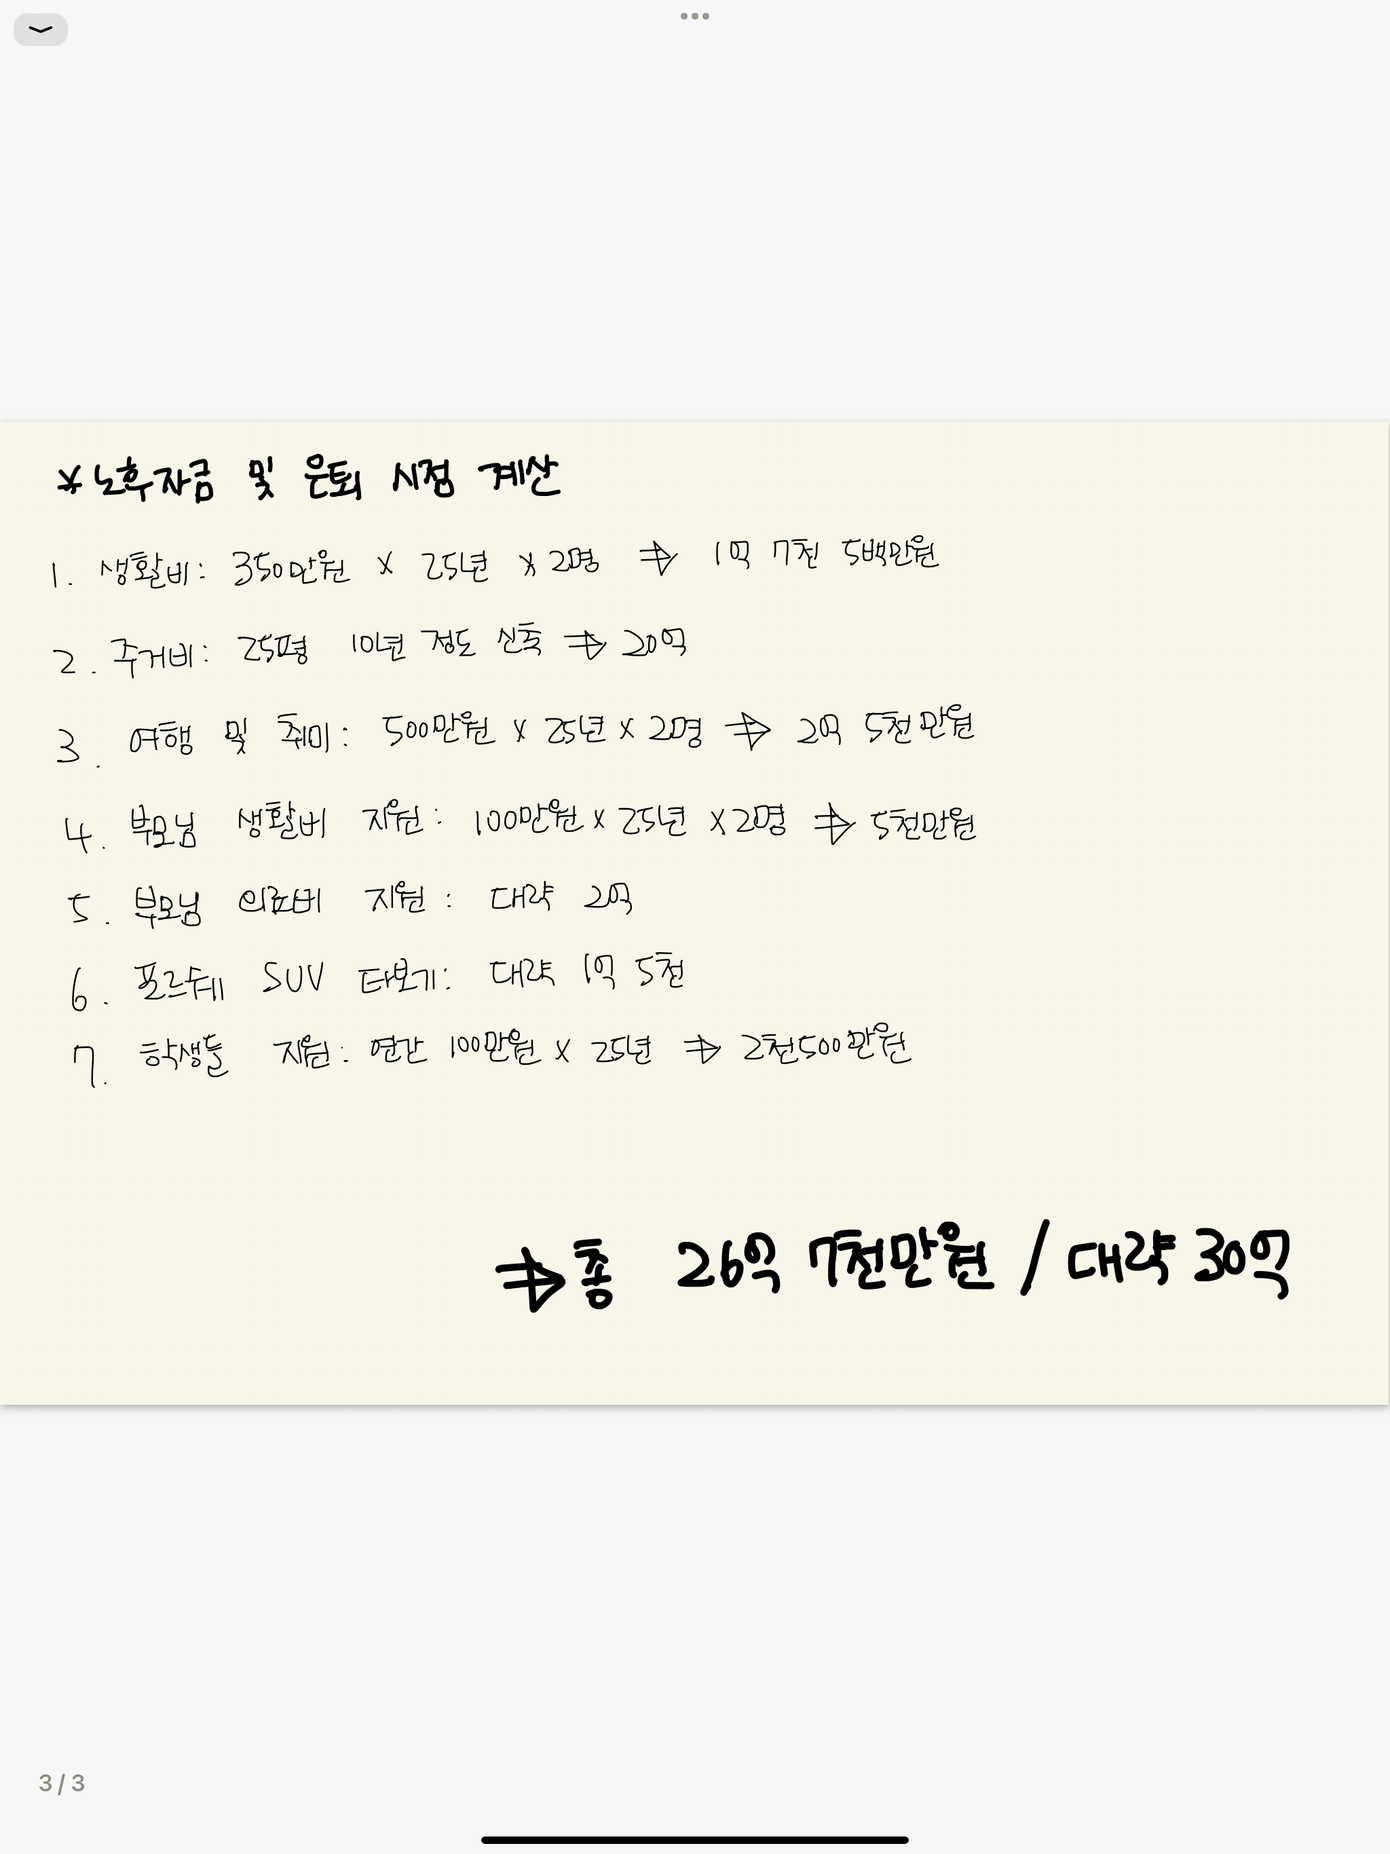 * 노후자금 및 은퇴 시점 계산
1. 생활비: 350만원 x 25년 x 2명 ⇒ 1억 7천 5백만원
2. 주거비: 25평 10년 정도 신축 ⇒ 20억
3. 여행 및 취미: 500만원 x 25년 x 2명 ⇒ 2억 5천만원
4. 부모님 생활비 지원: 100만원 x 25년 x 2명 ⇒ 5천만원
5. 부모님 의료비 지원: 대략 2억
6. 포르쉐 SUV 타보기: 대략 1억 5천
7. 학생들 지원: 연간 100만원 x 25년 ⇒ 2천500만원
⇒ 총 26억 7천만원 / 대략 30억
3 / 3